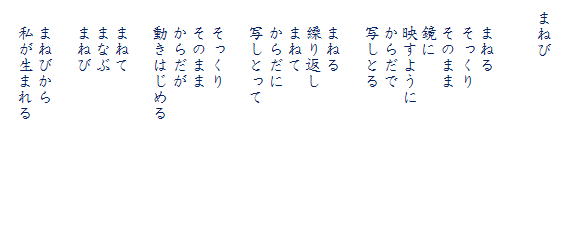 まねび
まねる
そっくり
そのまま
鏡に
映すように
からだで
写しとる
まねる
繰り返し
まねて
からだに
写しとって
そっくり
そのまま
からだが
動きはじめる
まねて
まなぶ
まねび
まねびから
私が生まれる